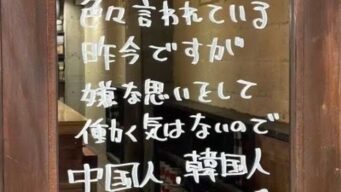 色々言われている
昨今ですが
嫌な思いをして
働く気はないので
中国人、韓国人